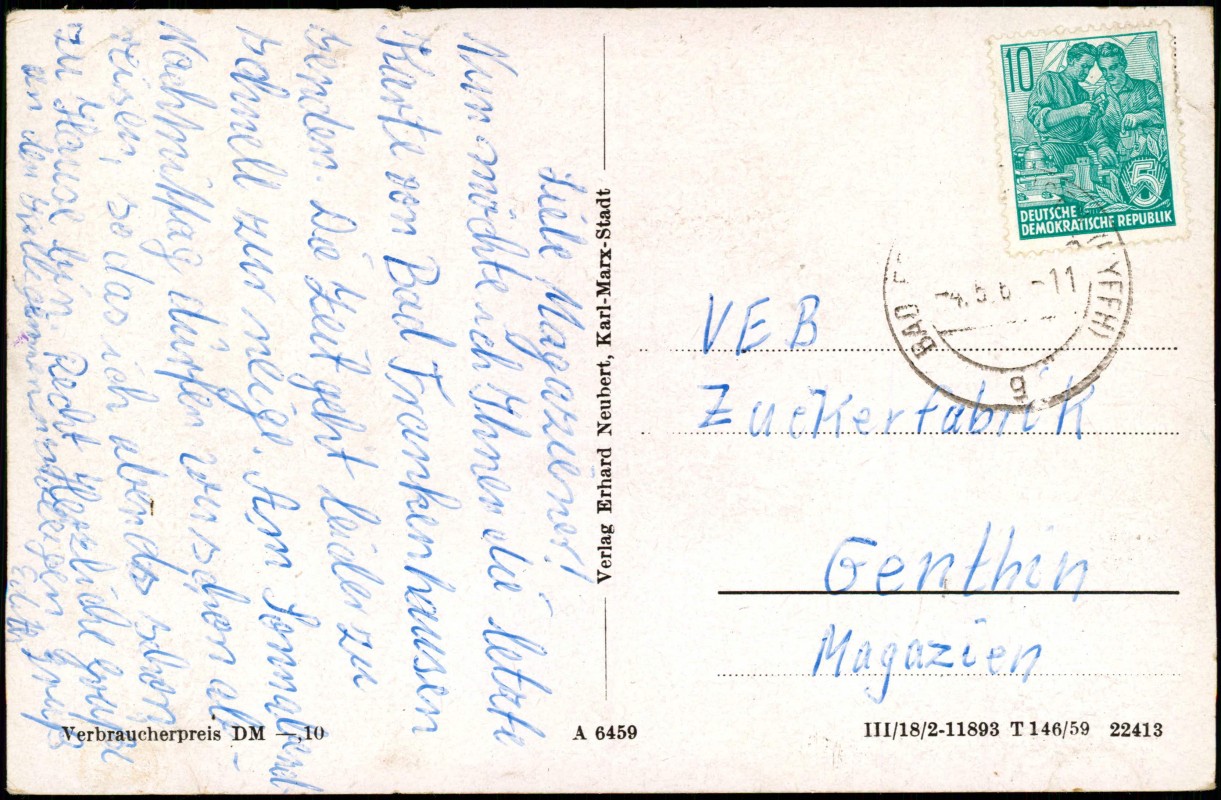 Liebe Magaziener!
Nun möchte ich Ihnen die letzte
Karte von Bad Frankenhausen
senden. Die Zeit geht leider zu
schnell zur neige. Am Sonnabend
Nachmittag dürfen wir schon ab-
reisen, so das ich abends schon
zu Hause bin. Recht Herzliche Grüße
an den
Verbraucherpreis DM —,10
Verlag Erhard Neubert, Karl-Marx-Stadt
A 6459
10
5
DEUTSCHE
DEMOKRATISCHE REPUBLIK
BAD F (KYFFH)
4.5.6 -11
b
VEB
Zuckerfabrik
Genthin
Magazien
III/18/2-11893 T 146/59 22413